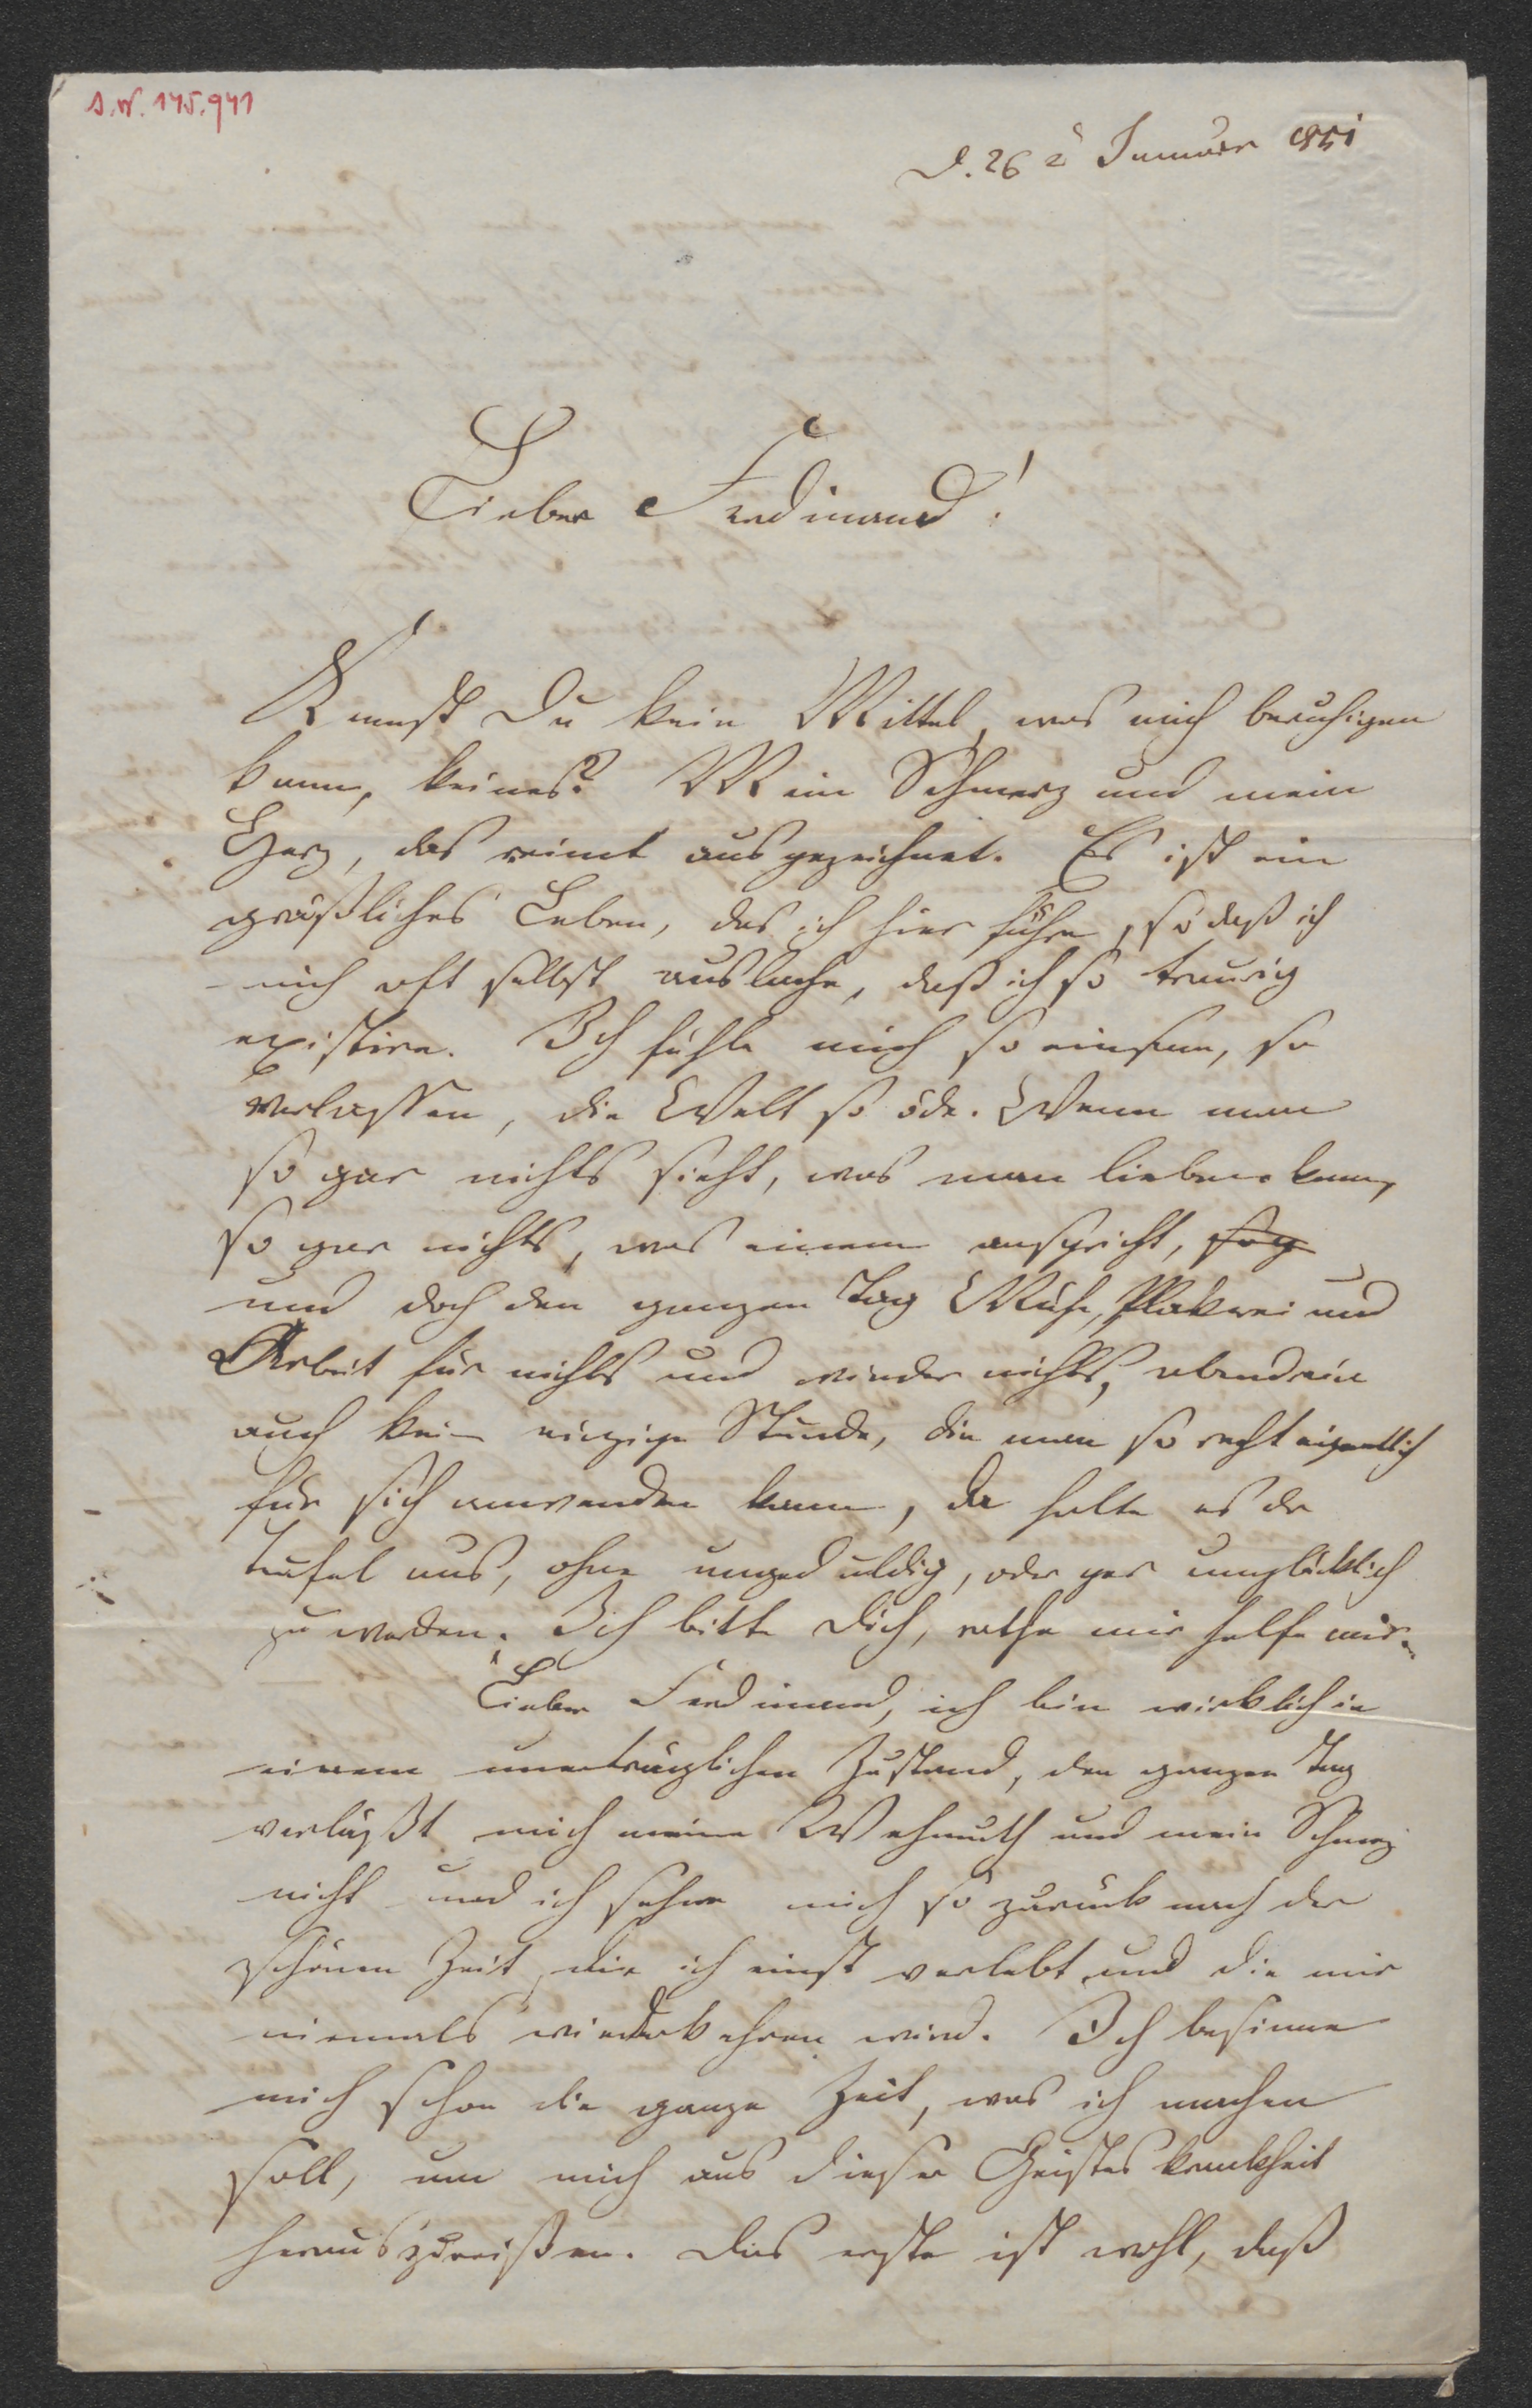 I.N. 145.941
d. 26 t Januar 1851
Lieber Ferdinand!
Kennst Du kein Mittel, was mich beruhigen
kann, keines? Mein Schmerz und mein
Herz, das reimt ausgezeichnet. Es ist ein
gräßliches Leben, das ich hier führe, so daß ich
mich oft selbst auslache, daß ich so traurig
existire. Ich fühle mich so einsam, so
verlassen, die Welt so öde. Wenn man
so gar nichts sieht, was man lieben kann,
so gar nichts, was einem anspricht,
und doch den ganzen Tag Mühe, Plakerei und
Arbeit für nichts und wieder nichts, obendrein
auch keine einzige Stunde, die man so recht eigentlich
für sich anwenden kann, da halte es der
Teufel aus, ohne ungeduldig, oder gar unglücklich
zu werden. Ich bitte Dich, rathe mir helfe mir.
Lieber Ferdinand, ich bin wirklich in
einem unerträglichen Zustand, den ganzen Tag
verläßt mich meine Wehmuth und mein Schmerz
nicht und ich sehne mich so zurück nach der
schönen Zeit, die ich einst verlebt und die mir
niemals wiederkehren wird. Ich besinne
mich schon die ganze Zeit, was ich machen
soll, um mich aus dieser Geisteskrankheit
herauszureißen. Das erste ist wohl, daß